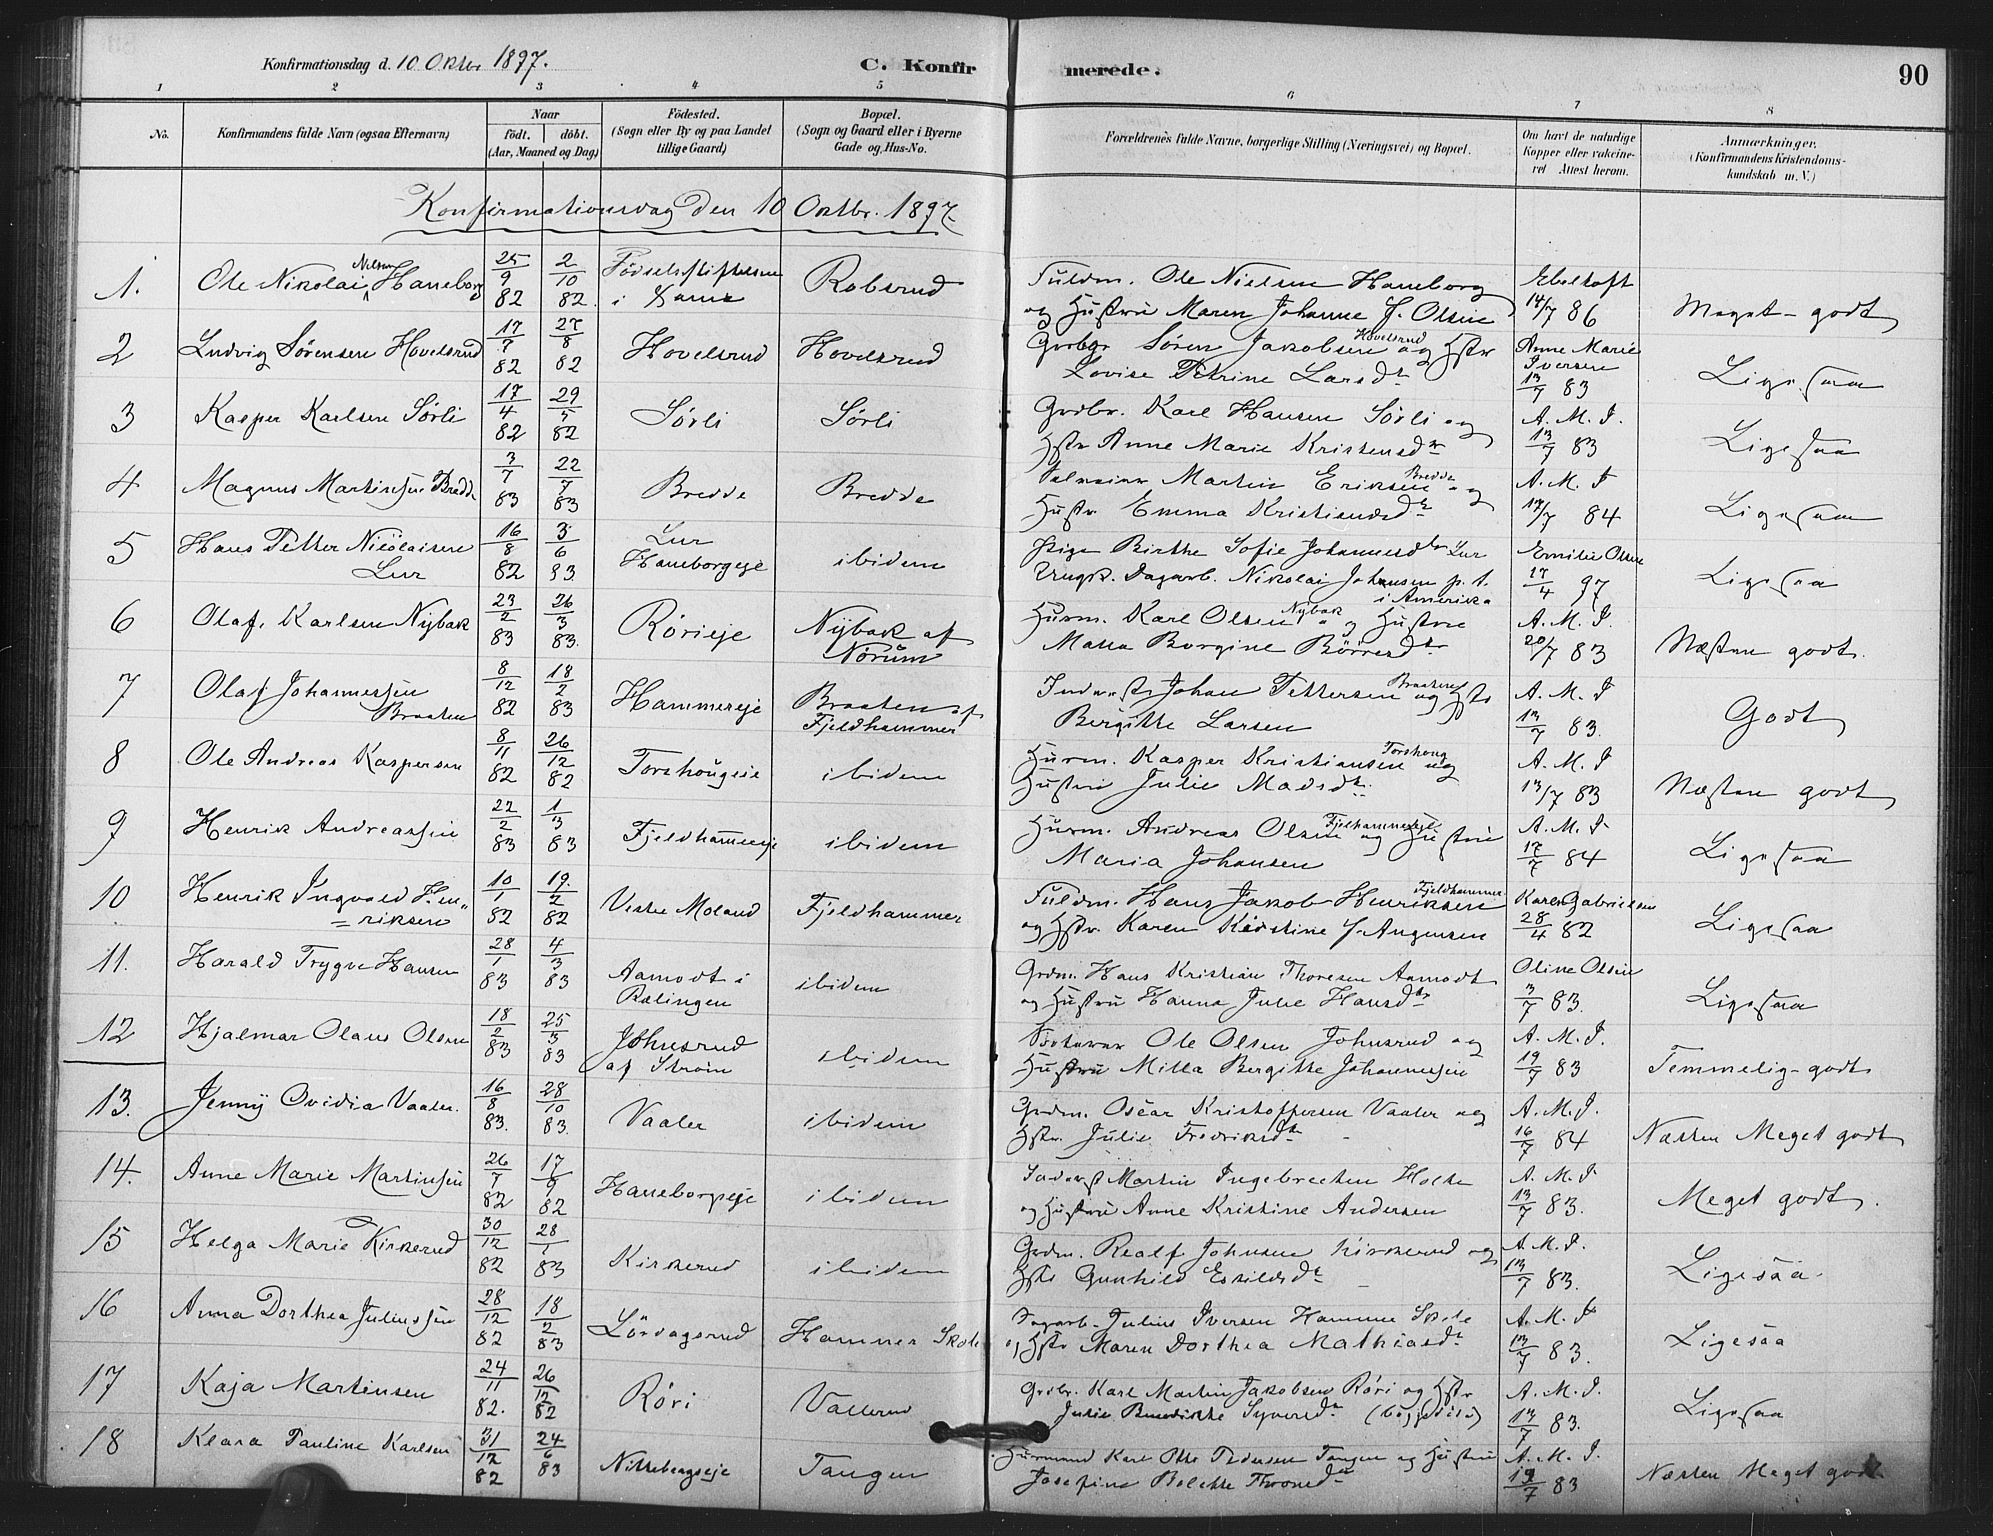 Konfirmationsdag d. 10 Oktbr 1897.
C. Konfirmerede.
90
1 2 3 4 5 6 7 8
No. Konfirmandens fulde Navn (ogsaa Efternavn)
Naar født. døbt. (Aar, Maaned og Dag)
Fødested. (Sogn eller By og paa Landet tillige Gaard)
Bopæl. (Sogn og Gaard eller i Byerne Gade og Hus-No.
Forældrenes fulde Navne, borgerlige Stilling (Næringsvei) og Bopæl.
Om havt de naturlige Kopper eller vakcineret Attest herom.
Anmærkninger. (Konfirmandens Kristendomskundskab m. V.)
Konfirmationsdag den 10 Oktbr. 1897
1. Ole Nikolai Nilsen Haneborg 25/9 82 2/10 82. Fødselsstiftelsen i Robsrud Fuldm. Ole Nielsen Haneborg og Hustru Maren Johanne f. Olsen Ebeltoft 14/7 86 Meget godt
2 Ludvig Sørensen Hovelsrud 17/7 82 27/8 82 Hovelsrud Hovelsrud Grdbr Søren Jakobsen Hovelsrud og Hstr Lovise Petrine Larsdtr Anne Marie Iversen 13/7 83 Ligesaa
3 Kasper Karlsen Sørli 17/4 82 29/5 82 Sørli Sørli Grdbr. Karl Hansen Sørli og Hstr Anne Marie Kristensdtr A. M. I. 13/7 83 Ligesaa
4 Magnus Martinsen Bredde 3/7 83 22/7 83 Bredde Bredde Martin Eriksen Bredde og Hustr Emma Kristiansdtr A. M. I 17/7 84 Ligesaa
5 Hans Petter Nicolaisen Lur 16/8 82 3/6 93 Lur Haneborgeje ibidem Pige Birthe Sofie Johannesdtr Lur Ungk. Dagarb. Nikolai Johansen p. t. i Amerika Emilie Olsen 27/4 97 Ligesaa
6 Olaf Karlsen Nybak 23/2 83 26/3 83. Rørieje Nybak af Nørum Husm. Karl Olsen Nybak og Hustru Mathea Borgine Børresdtr A. M. I. 20/7 83 Næsten godt.
7 Olaf Johannessen Braaten 8/12 82 18/2 83 Hammereje Braaten af Fjeldhammer Inderst Johan Pettersen Braaten og Hstr Bergitte Larsen A. M. I 13/7 83. Godt
8 Ole Andreas Kaspersen 8/11 82 26/12 82 Torshougeie ibidem Husm. Kasper Kristiansen Torshoug og Hustru Julie Madsdtr. A. M. I 13/7 83 Næsten godt
9 Henrik Andreassen 22/2 83 1/3 83 Fjeldhammereje ibidem Husm. Andreas Olsen Fjeldhammereje og Hustru Maria Johansen A. M. I 17/7 84 Ligesaa
10 Henrik Ingvald Henriksen 10/1 82 19/2 82 Vestre Moland Fjeldhammer Fuldm. Hans Jakob Henriksen Fjeldhammer og Hstr. Karen Kirstine f. Angensen Karen Gabrielsen 28/4 82 Ligesaa
11. Harald Trygve Hansen 28/1 83 4/3 83 Aamodt i Rælingen ibidem Grdm. Hans Kristian Thoresen Aamodt og Hustru Hanna Julie Hansdtr Oline Olsen 3/7 83. Ligesaa
12 Hjalmar Olaus Olsen 18/2 83 25/3 83 Johnsrud af Strøm ibidem Ole Olsen Johnsrud og Hustru Milla Bergitte Johannessen A. M. I. 19/7 83 Temmelig godt
13. Jenny Ovidia Vaaler. 16/8 83. 28/10 83. Vaaler ibidem Grdm. Oscar Kristoffersen Vaaler og Hstr. Julie Fredriksdtr A. M. I. 16/7 84 Næsten Meget godt
14. Anne Marie Martinsen 26/7 82 17/9 82 Haneborgeje ibidem Inderst Martin Ingebretsen Holte og Hustru Anne Kristine Andersen A. M. I 13/7 83. Meget godt.
15 Helga Marie Kirkerud 30/12 82 28/1 83 Kirkerud ibidem Grdm. Realf Johnsen Kirkerud og Hstr Gunhild Eskildsdtr A. M. I. 13/7 83. Ligesaa
16 Anna Dorthea Juliussen 28/12 82 18/2 83 Lørdagsrud Hammer Skole Dagarb. Julius Iversen Hammer Skole og Hstr Maren Dorthea Mathiasdtr A. M. I 13/7 83. Ligesaa
17 Kaja Martinsen 24/11 82. 26/12 82 Røri Vallerud Grdbr. Karl Martin Jakobsen Røri og Hstr Julie Benedikte Syversdtr A. M. I. 13/7 83. Ligesaa
18 Klara Pauline Karlsen 31/12 82 24/6 83 Nittebergseje Tangen Husmand Karl Otto Pedersen Tangen og Hustru Josefine Bolette Thronsdtr A. M. I. 19/7 83 Næsten Meget godt